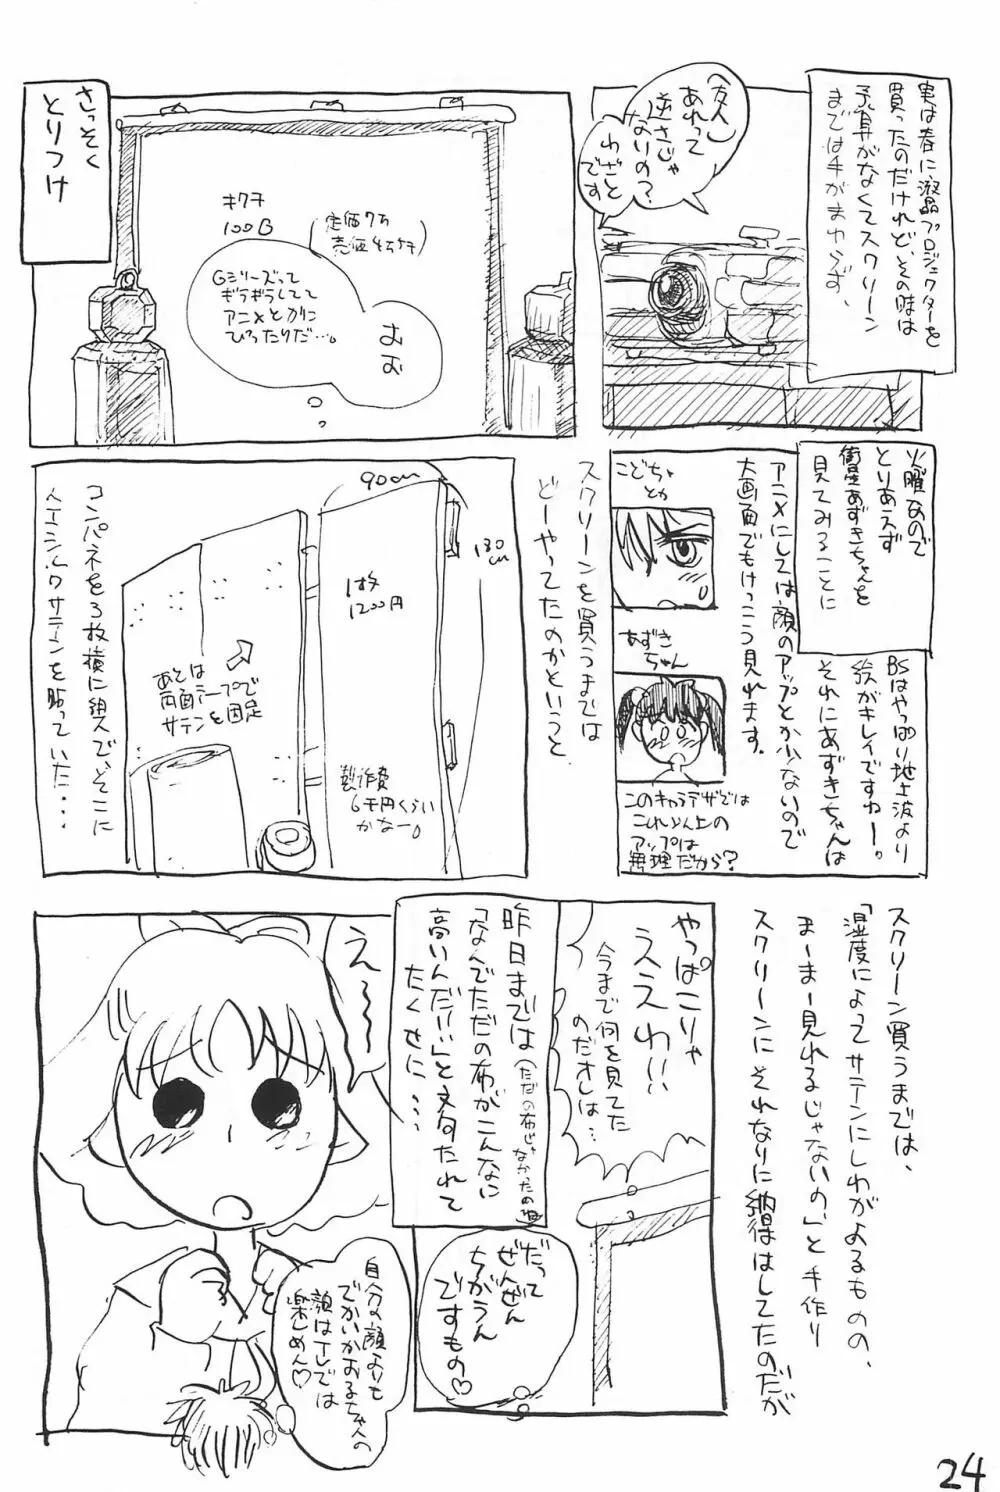 実は春に液晶プロジェクターを
買ったのだけれど、その時は
予算がなくてスクリーン
までは手がまわらず、
(友人)
あれって
逆さじゃ
ないの?
わざと
です
さっそく
とりつけ
キクチ
100G
(定価7万
Gシリーズって
ギラギラしてて
アニメとかに
ぴったりだ…。
むお
火曜なので
とりあえず
衛星あずきちゃんを
見てみることに
BSはやっぱり地上波より
絵がキレイですねー。
それにあずきちゃんは
アニメにしては顔のアップとか少ないので
大画面でもけっこう見れます。
こどちゃ
とか
あずき
ちゃん
このキャラデザでは
これ以上の
アップは
無理だから?
スクリーンを買うまでは
どーやってたのかというと
90cm
180
cm
1枚
1200円
あとは
両面テープで
サテンを固定
製作費
6千円くらい
かなー。
コンパネを3枚横に組んで、そこに
サテンを貼っていた・・・
スクリーン買うまでは、
「湿度によってサテンにしわがよるものの、
まーまー見れるじゃないの」と手作り
スクリーンにそれなりに納得はしてたのだが
やっぱこりゃ
ええわ!!
今まで何を見てた
のだオレは…
昨日までは(ただの布じゃなかったのね)
「なんでただの布がこんなに
高いんだ!!」と文句たれて
たくせに・・・
だって
ぜんぜん
ちがうん
ですもの♡
え〜〜
自分の顔よりも
でかいかおるちゃんの
顔はTVでは
楽しめん♡
24